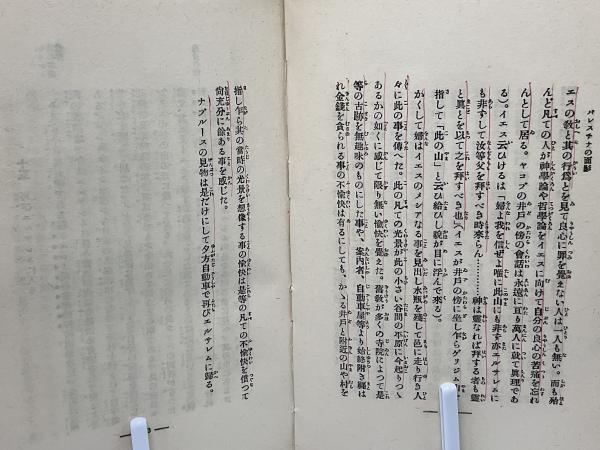 パレスチナの面影
エスの教と其の行爲とを見て良心に罪を覺えない人は一人も無い。而も殆
んど凡ての人が神學論や哲學論をイエスに向けて自分の良心の苦痛を忘れ
んとして居る。ヤコブの井戸の傍の會話は永遠に亘も萬人に就て眞理であ
る）。イエス云ひけるは「婦よ我を信ぜよ唯に此山にも非ず亦エルサレムに
も非ずして汝等父を拜すべき時來らん………神は靈なれば拜する者も靈
と眞とを以て之を拜すべき也」（イエスが井戸の傍に坐し乍らゲリジム山を
指して「此の山」と云ひ給ひし貌が目に浮んで來る）。
かくして婦はイエスのメシアなる事を見出し水瓶を殘して邑に走り行き人
々に此の事を傳へた。此の凡ての光景が此の小さい谷間の平原に今起りつゝ
あるかの如くに感じて限り無い愉快を覺えた。舊敎が多くの寺院によつて是
等の古跡を無趣味のものにした事や、案内者、自動車屋等より始終附き纏は
れ金錢を貪られる事の不愉快は有るにしても、かゝる井戸と附近の山や村を
指し乍ら其の當時の光景を想像する事の愉快は是等の凡ての不愉快を償つて
尙充分に餘ある事を感じた。
ナブルースの見物は是だけにして夕方自動車で再びエルサレムに歸る。